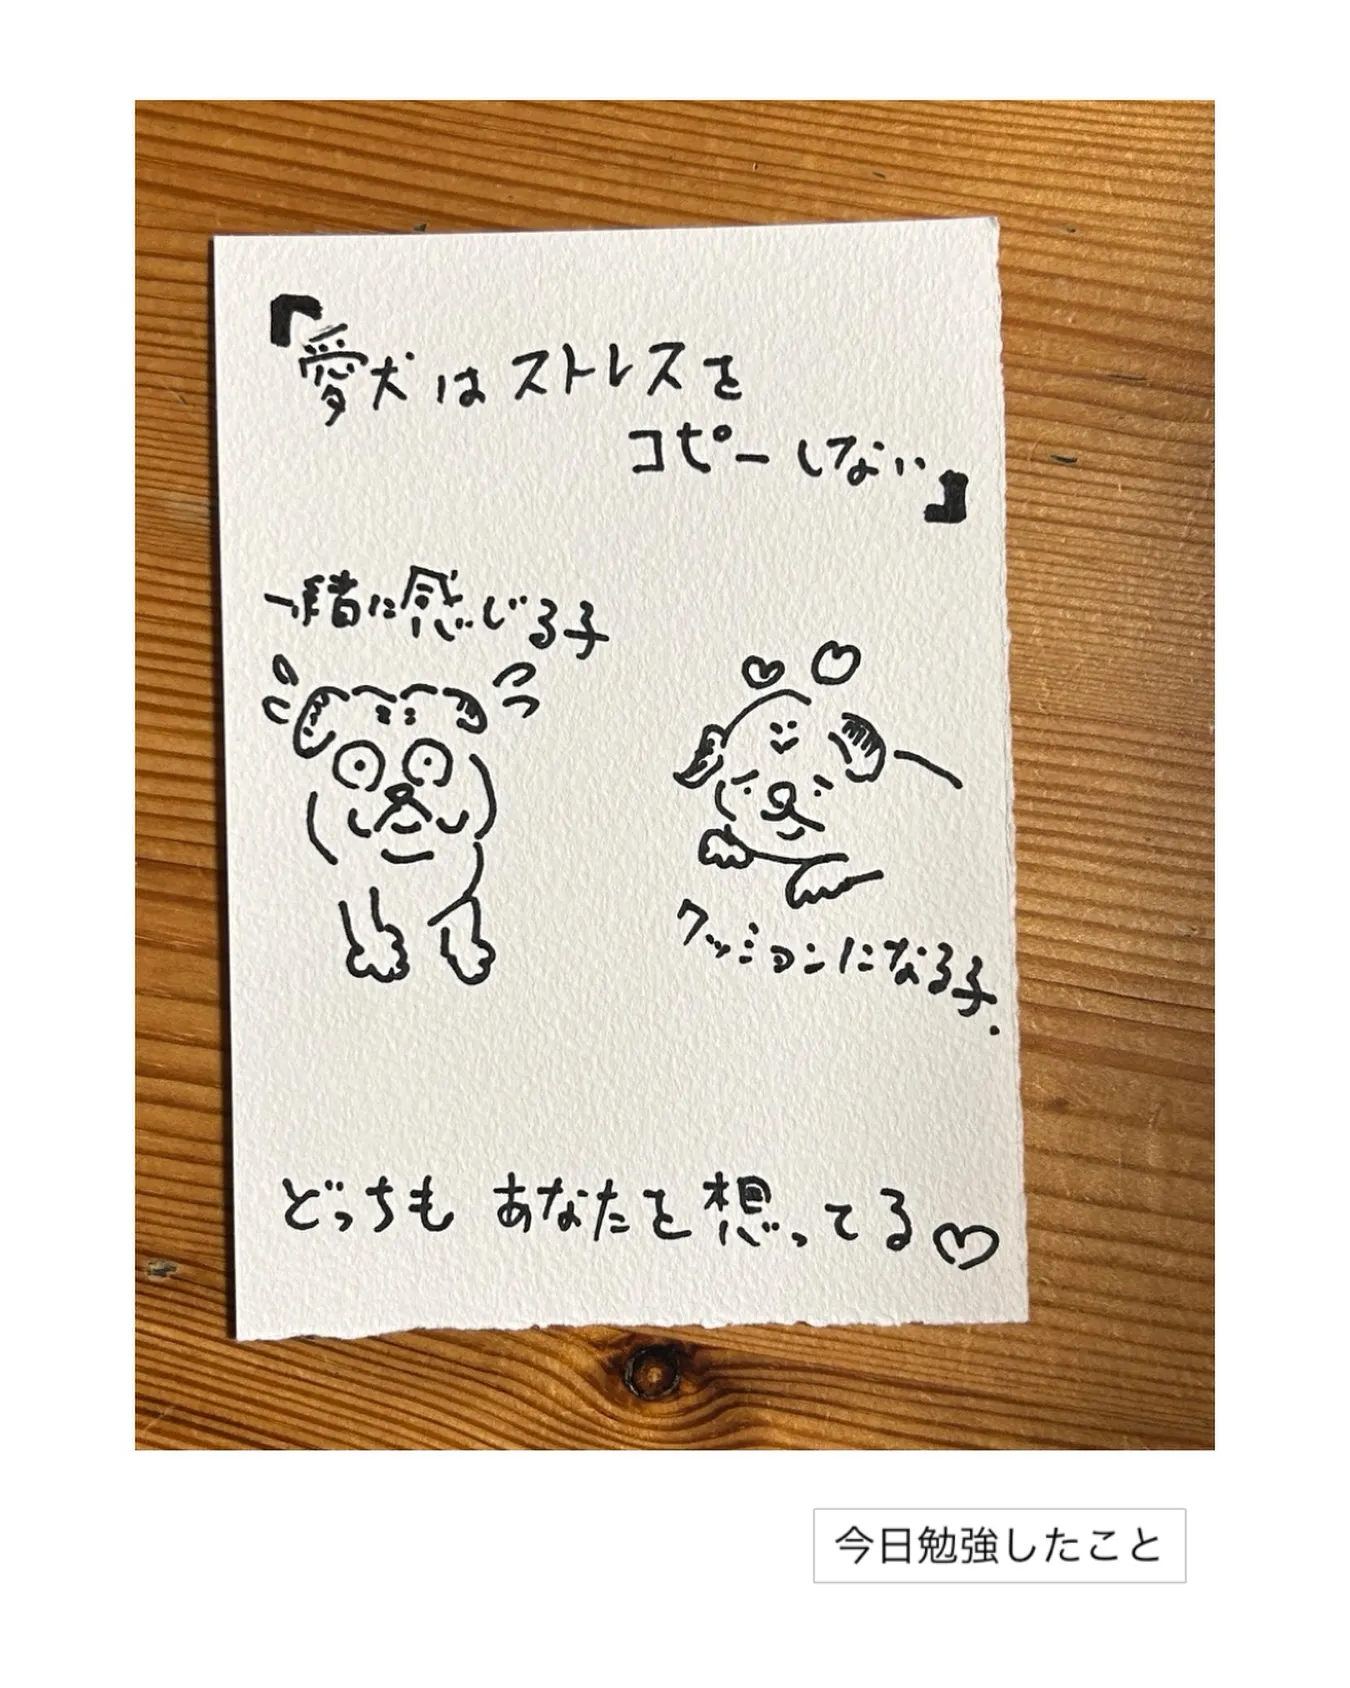 『愛犬はストレスを
コピーしない』
一緒に感じる子
クッションになる子.
どっちも あなたを想ってる♡
今日勉強したこと